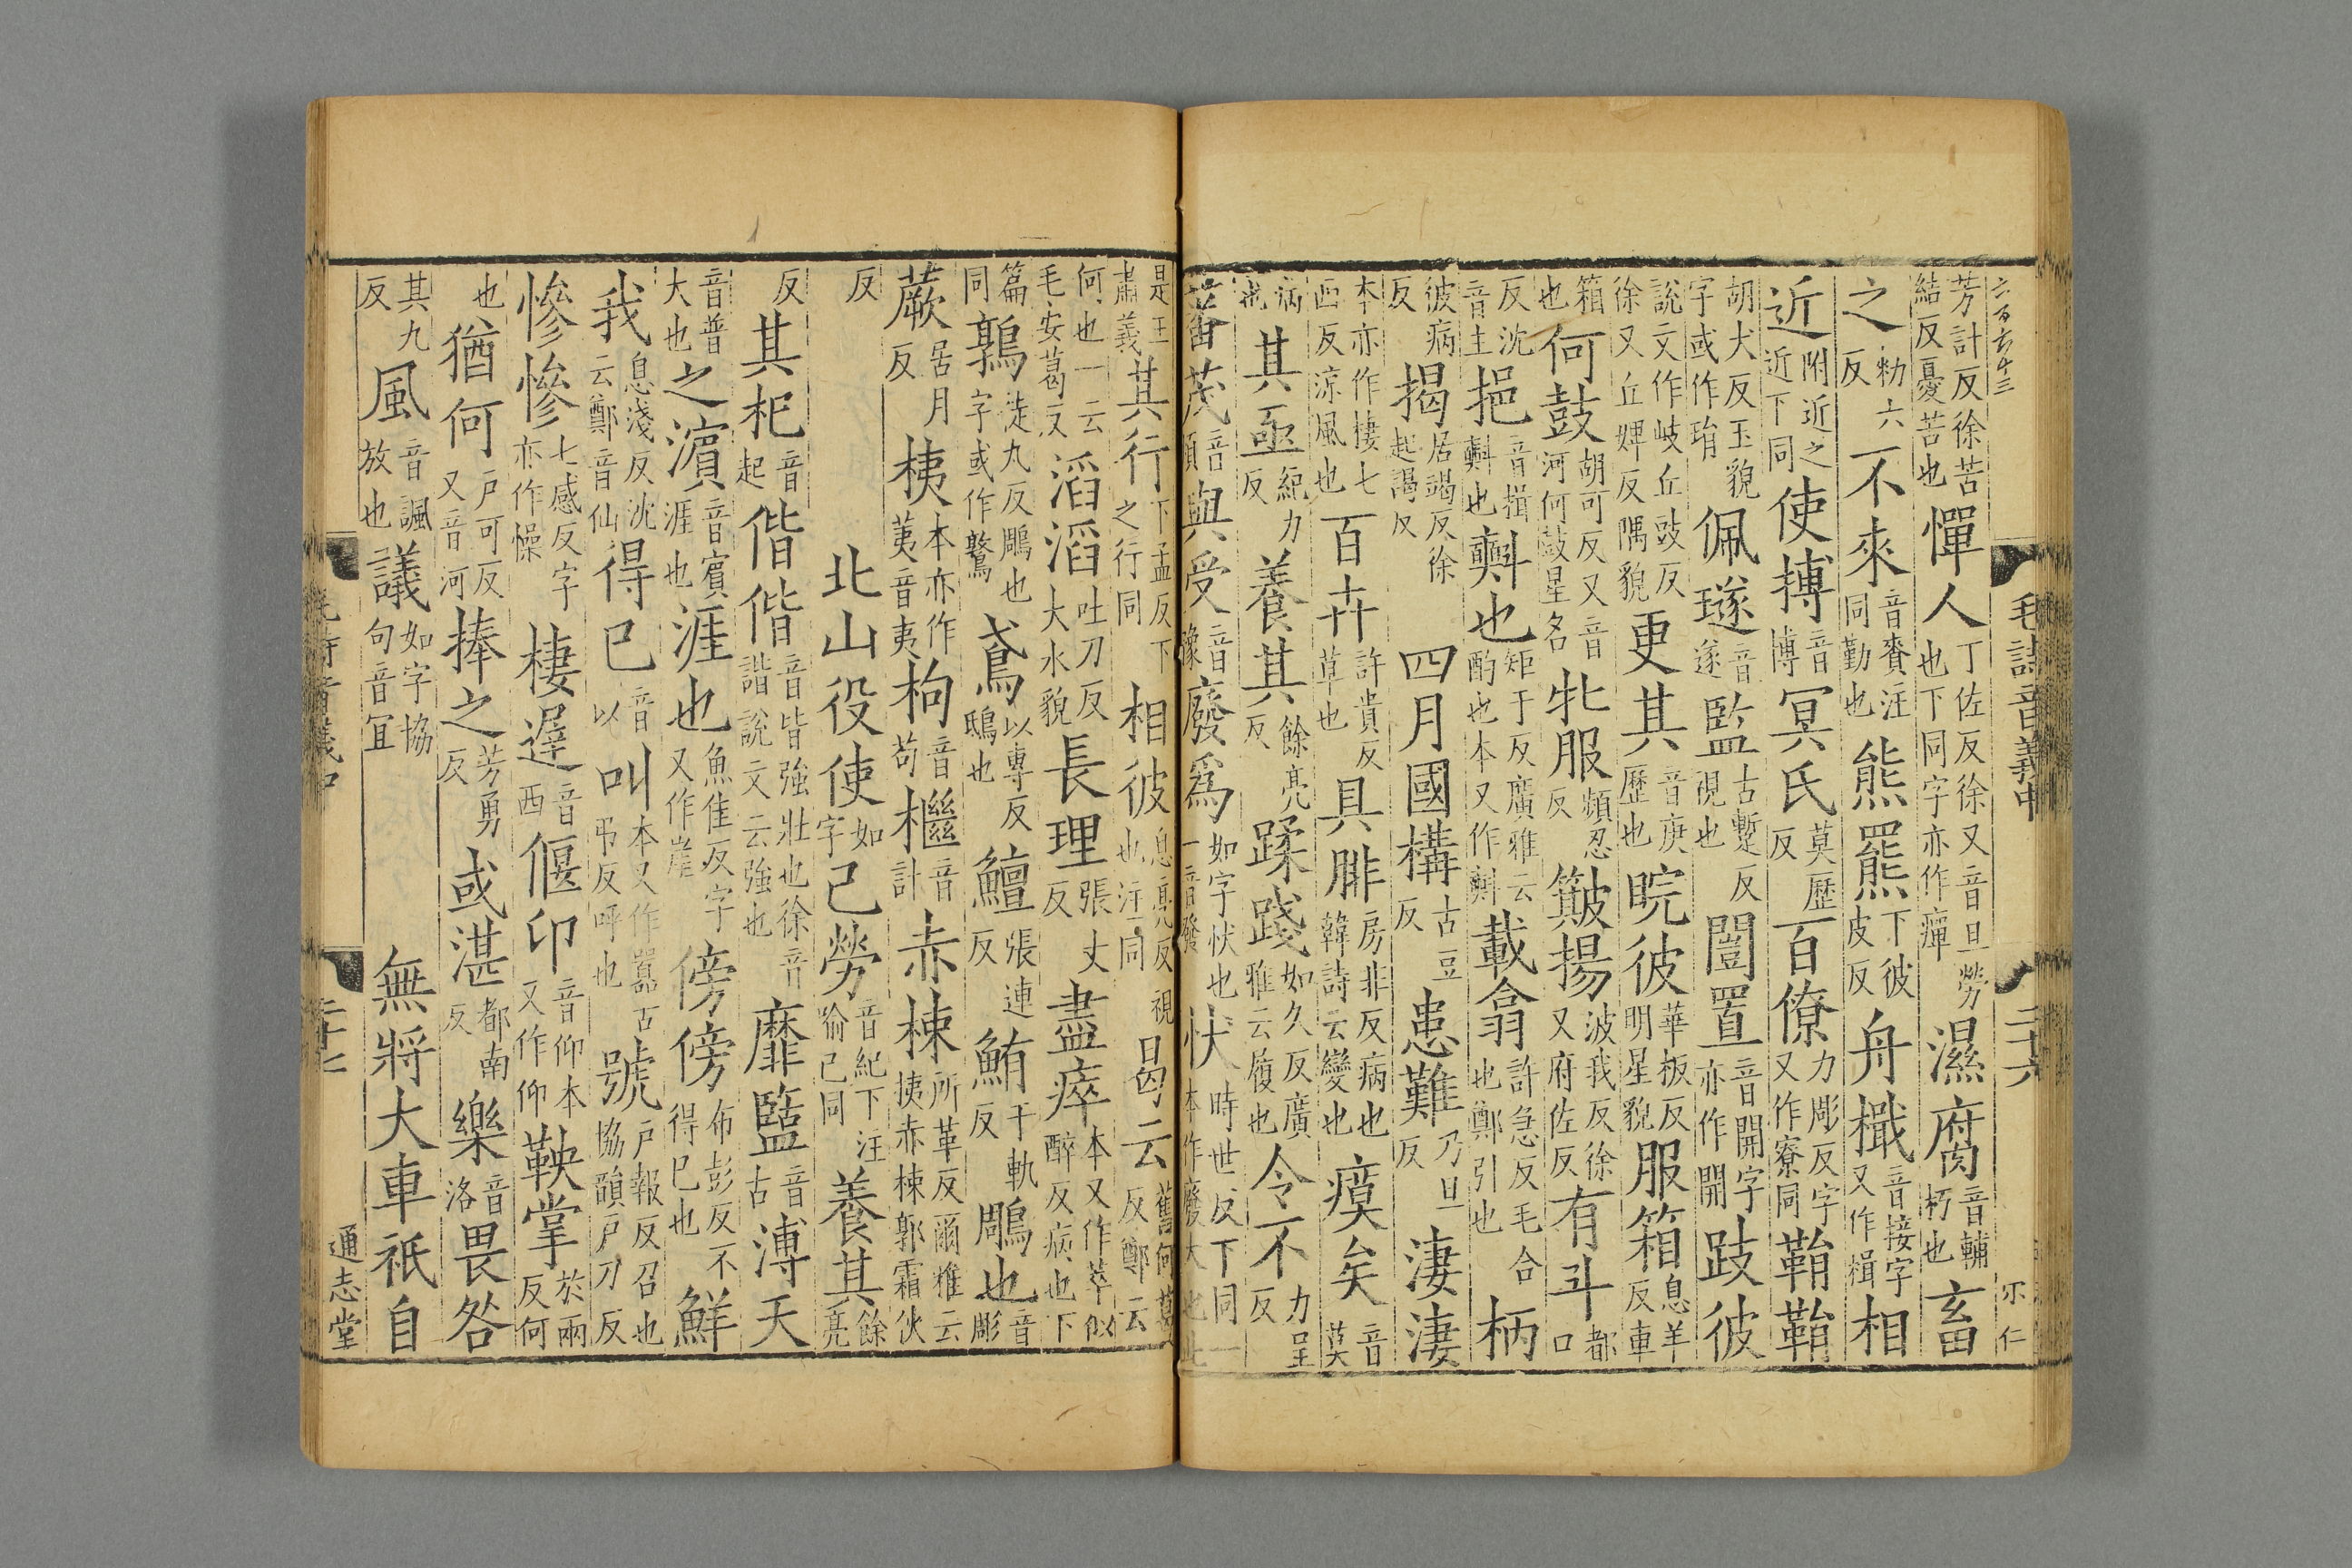 六百六十三 毛詩音義中 二十六 尔仁
芳計反徐苦結反憂苦也憚人丁佐反徐又音旦勞也下同字亦作癉濕腐音輔朽也畜
之勑六反不來音賚注同勤也熊羆下彼皮反舟檝音接字又作楫相
近附近之近下同使搏音博冥氏莫歷反百僚力彫反字又作寮同鞙鞙
胡犬反玉貌字或作琄佩璲音遂監古蹔反視也闓置音開字亦作開跂彼
說文作岐丘豉反徐又丘婢反隅貌更其音庚歷也睆彼華板反明星貌服箱息羊反車
箱也何鼓胡可反又音河何鼓星名牝服頻忍反簸揚波我反徐又府佐反有斗都口
反沈音主挹音揖㪺也㪺也矩于反廣雅云酌也本又作㪺載翕許急反毛合也鄭引也柄
彼病反揭居竭反徐起謁反四月國構古豆反患難乃旦反淒淒
本亦作棲七西反涼風也百卉許貴反草也具腓房非反病也韓詩云變也瘼矣音莫
病也其亟紀力反養其餘亮反蹂踐如久反廣雅云履也令不力呈反
蕃茂音煩與受音豫廢爲如字忕也一音發忕時世反下同一本作廢大也此
是王肅義其行下孟反下之行同相彼息亮反也注同曷云舊何葛反鄭云
何也一云毛安葛反滔滔吐刀反大水貌長理張丈反盡瘁本又作萃似醉反病也下
篇同鶉徒丸反鵰也字或作鷻鳶以專反鴟也鱣張連反鮪于軌反鵰也音彫
蕨居月反桋本亦作荑音夷枸音苟檵音計赤栜所革反爾雅云桋赤栜郭霜狄
反北山役使如字己勞音紀下注喻己同養其餘亮
反其杞音起偕偕音皆強壯也徐音諧說文云強也靡盬音古溥天
音普大也之濱音賓涯也涯也魚佳反字又作崖傍傍布彭反不得已也鮮
我息淺反沈云鄭音仙得已音以叫本又作嚻古弔反呼也號戶報反召也協韻戶刀反
慘慘七感反字亦作懆棲遲音西偃卬音仰本又作仰鞅掌於兩反何
也猶何戶可反又音河捧之芳勇反或湛都南反樂音洛畏咎
其九反風音諷放也議如字協句音宜無將大車祇自
毛詩音義中 二十七 通志堂